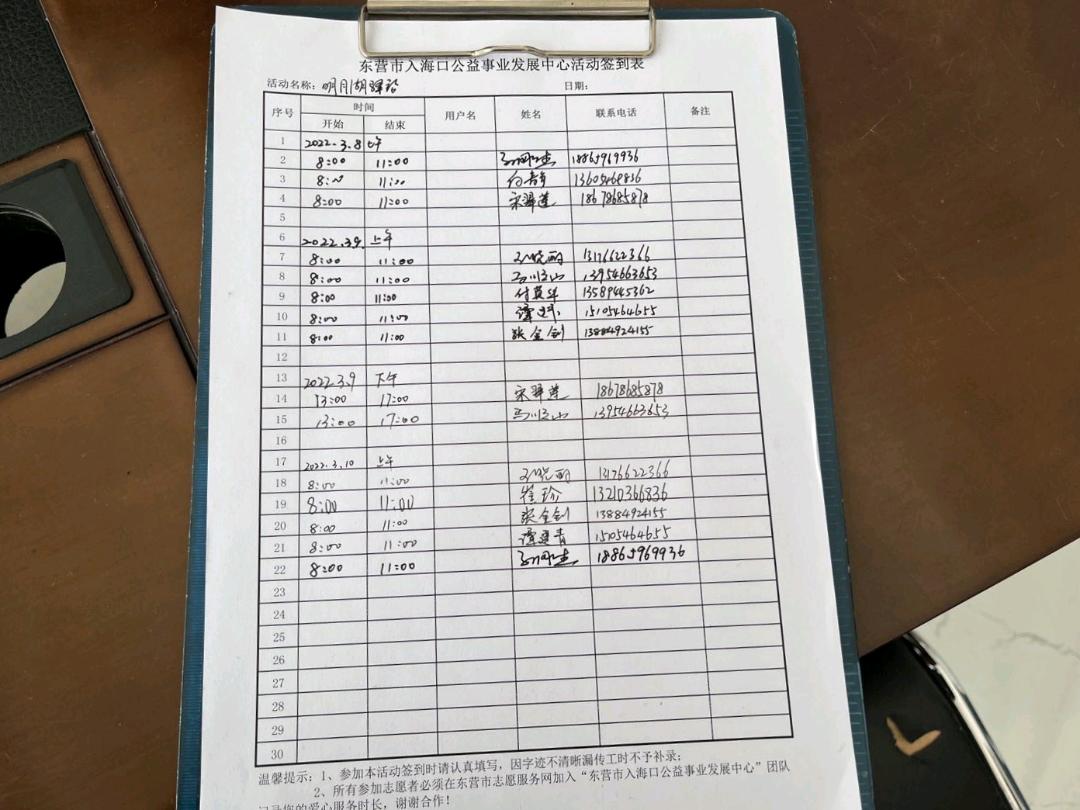 东营市入海口公益事业发展中心活动签到表
活动名称：明月湖 日期：
序号 时间 用户名 姓名 联系电话 备注
开始 结束
1 2022.3.8 上午
2 8:00 11:00 18865969936
3 8:00 11:00 13605468836
4 8:00 11:00 宋翠莲 18678685878
5
6 2022.3.9. 上午
7 8:00 11:00 孙晓丽 13176622366
8 8:00 11:00 马顺山 13954663653
9 8:00 11:00 付英华 13589445362
10 8:00 11:00 谭 15105464655
11 8:00 11:00 张金剑 13884924155
12
13 2022.3.9 下午
14 13:00 17:00 宋翠莲 18678685878
15 13:00 17:00 马顺山 13954663653
16
17 2022.3.10 上午
18 8:00 11:00 孙晓丽 13176622366
19 8:00 11:00 崔珍 13210366836
20 8:00 11:00 张金剑 13884924155
21 8:00 11:00 谭 青 1505464655
22 8:00 11:00 18865969936
23
24
25
26
27
28
29
30
温馨提示：1、参加本活动签到时请认真填写，因字迹不清晰漏传工时不予补录；
2、所有参加志愿者必须在东营市志愿服务网加入“东营市入海口公益事业发展中心”团队
记录您的爱心服务时长，谢谢合作！